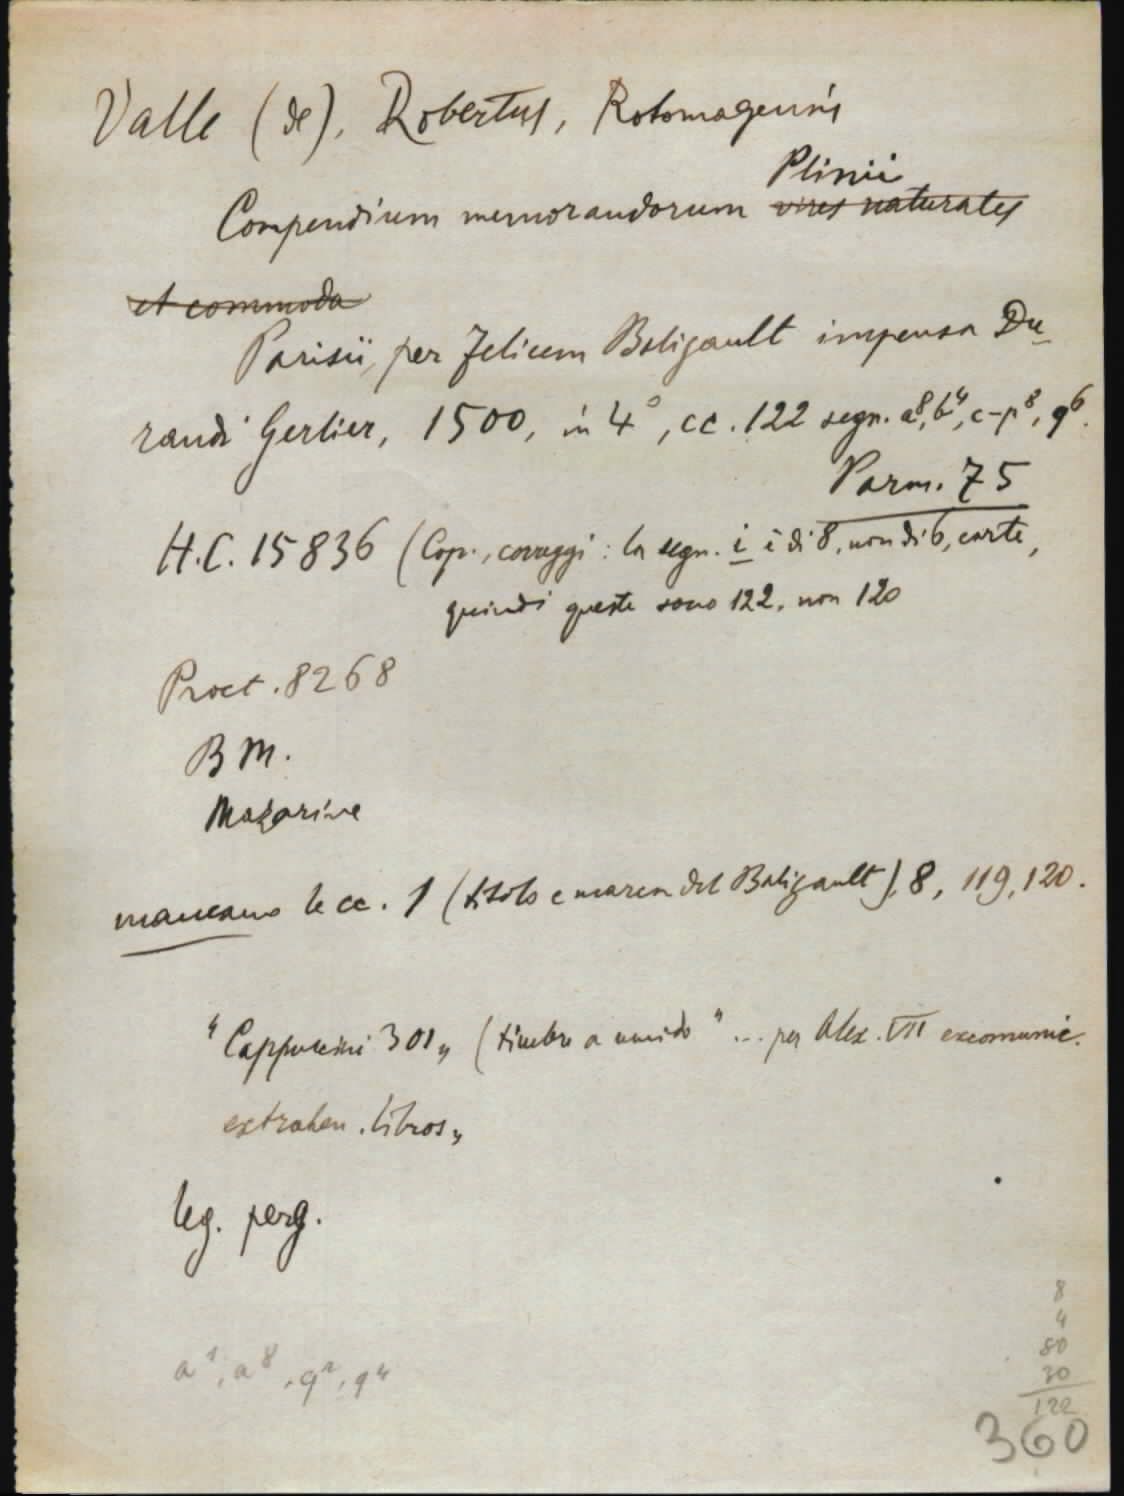 Valle (de), Robertus, Rotomagensis
Plinii
Compendium memorandorum vires naturales
et commoda
Parisii, per Felicem Baligault impensa Du-
randi Gerlier, 1500, in 4°, cc. 122 segn. a⁸, b⁴, c-p⁸, q⁶.
Parm. 75
H.C. 15836 (Cop., correggi: la segn. i è di 8, non di 6, carte,
quindi queste sono 122, non 120
Proct. 8268
B M.
Mazarine
mancano le cc. 1 (titolo e marca del Baligault), 8, 119, 120.
"Cappuccini 301" (timbro a umido " ... per Alex. VII excomunic.
extrahen. libros"
leg. perg.
a¹, a⁸, q², q⁴
8
4
80
30
122
360